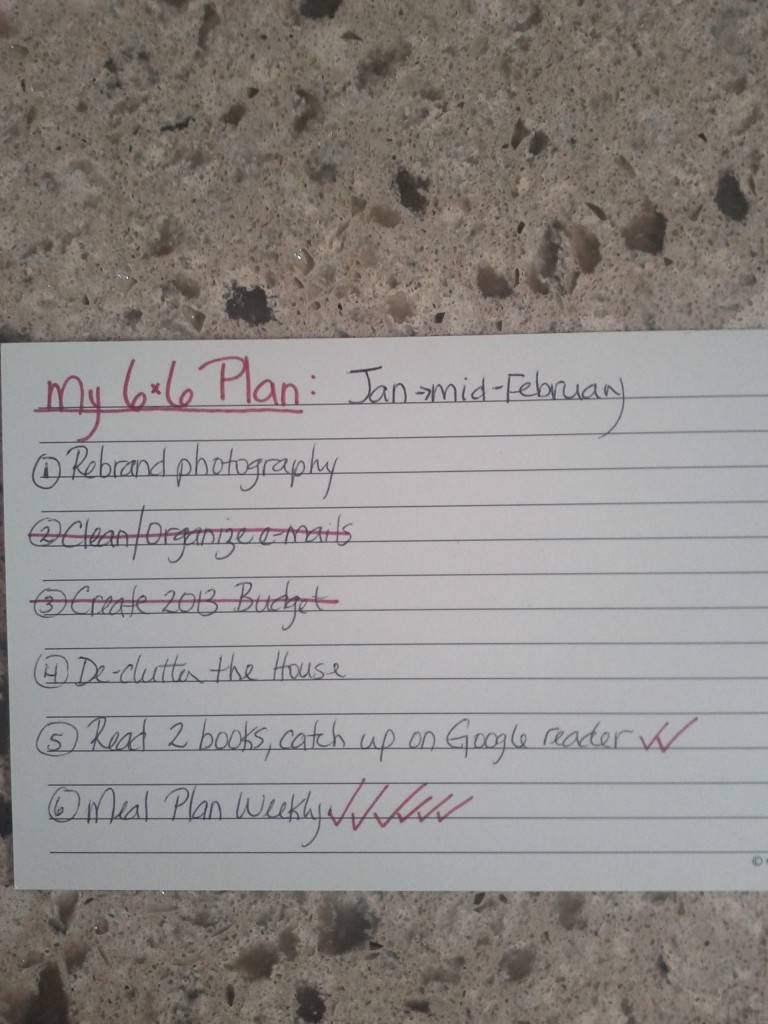 My 6x6 Plan: Jan→mid-February
① Rebrand photography
② Clean/Organize e-mails
③ Create 2013 Budget
④ De-clutter the House
⑤ Read 2 books, catch up on Google reader ✓✓
⑥ Meal Plan Weekly ✓✓✓✓✓
©